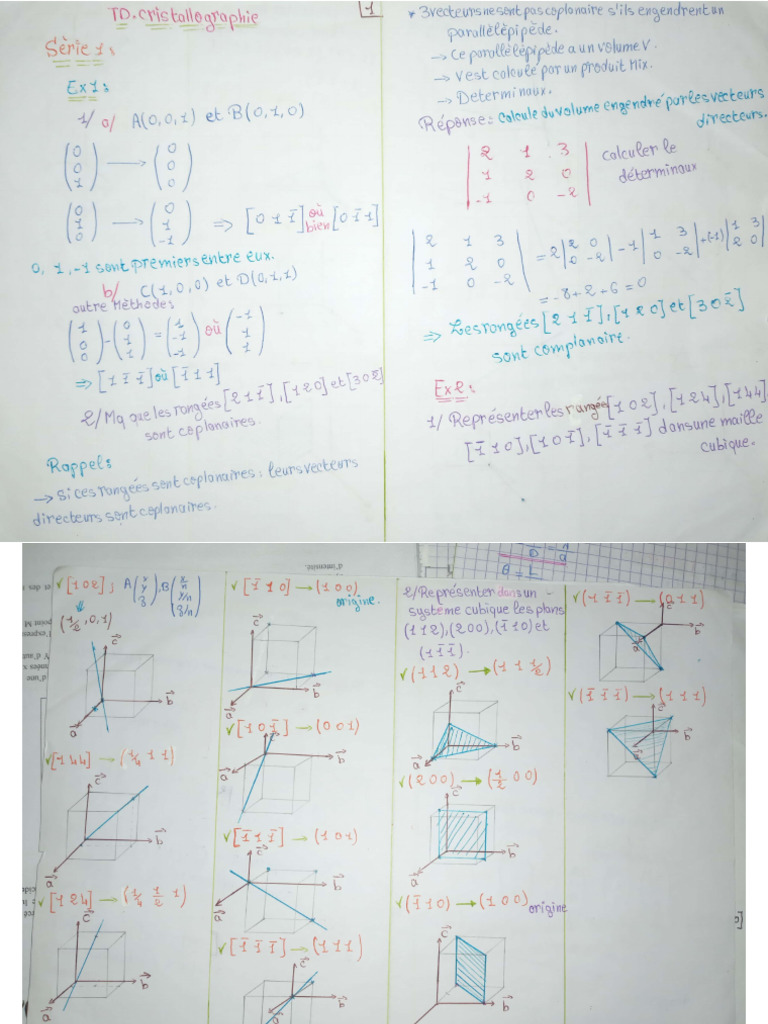 TD. cristallographie
1
Série 1:
Ex1:
1/ a/ A(0,0,1) et B(0,1,0)
(0 0 1) → (0 0 0)
(0 1 0) → (0 1 -1) ⇒ [0 1 1̄] où bien [0 1̄ 1]
0, 1, -1 sont premiers entre eux.
b/ C(1,0,0) et D(0,1,1)
autre Méthode:
(1 0 0) - (0 1 1) = (1 -1 -1) où (-1 1 1)
⇒ [1 1̄ 1̄] où [1̄ 1 1]
2/ Mq que les rangées [2 1 1̄], [1 2 0] et [3 0 2̄]
sont coplanaires.
Rappel:
→ Si ces rangées sont coplanaires: leurs vecteurs
directeurs sont coplanaires.
* 3 vecteurs ne sont pas coplanaire s'ils engendrent un
parallélépipède.
→ Ce parallélépipède a un volume V.
→ V est calculé par un produit Mix.
→ Determinaux.
Réponse: calcule du volume engendré par les vecteurs
directeurs.
| 2 1 3 |
| 1 2 0 |
| -1 0 -2 |
calculer le
déterminaux
| 2 1 3 |
| 1 2 0 |
| -1 0 -2 |
= 2 | 2 0 / 0 -2 | - 1 | 1 3 / 0 -2 | + (-1) | 1 3 / 2 0 |
= -8 + 2 + 6 = 0
⇒ Les rangées [2 1 1̄], [1 2 0] et [3 0 2̄]
sont complanaire.
Ex2:
1/ Représenter les rangée [1 0 2], [1 2 4], [1 4 4],
[1̄ 1 0], [1 0 1̄], [1̄ 1̄ 1̄] dans une maille
cubique.
d'intensité.
✓ [1 0 2] ; A (x y z), B (x/n y/n z/n)
(1/2, 0, 1)
c
b
a
✓ [1 4 4] → (1/4 1 1)
c
b
a
✓ [1 2 4] → (1/4 1/2 1)
c
b
a
✓ [1̄ 1 0] → (1 0 0)
origine.
c
b
a
✓ [1 0 1̄] → (0 0 1)
c
b
a
✓ [1̄ 1 1̄] → (1 0 1)
c
b
a
✓ [1̄ 1̄ 1̄] → (1 1 1)
c
b
a
2/ Représenter dans un
système cubique les plans
(1 1 2), (2 0 0), (1̄ 1 0) et
(1 1̄ 1̄).
✓ (1 1 2) → (1 1 1/2)
c
b
a
✓ (2 0 0) → (1/2 0 0)
c
b
a
✓ (1̄ 1 0) → (1 0 0) origine
c
b
a
✓ (1 1̄ 1̄) → (0 1 1)
c
b
a
✓ (1̄ 1̄ 1̄) → (1 1 1)
c
b
a